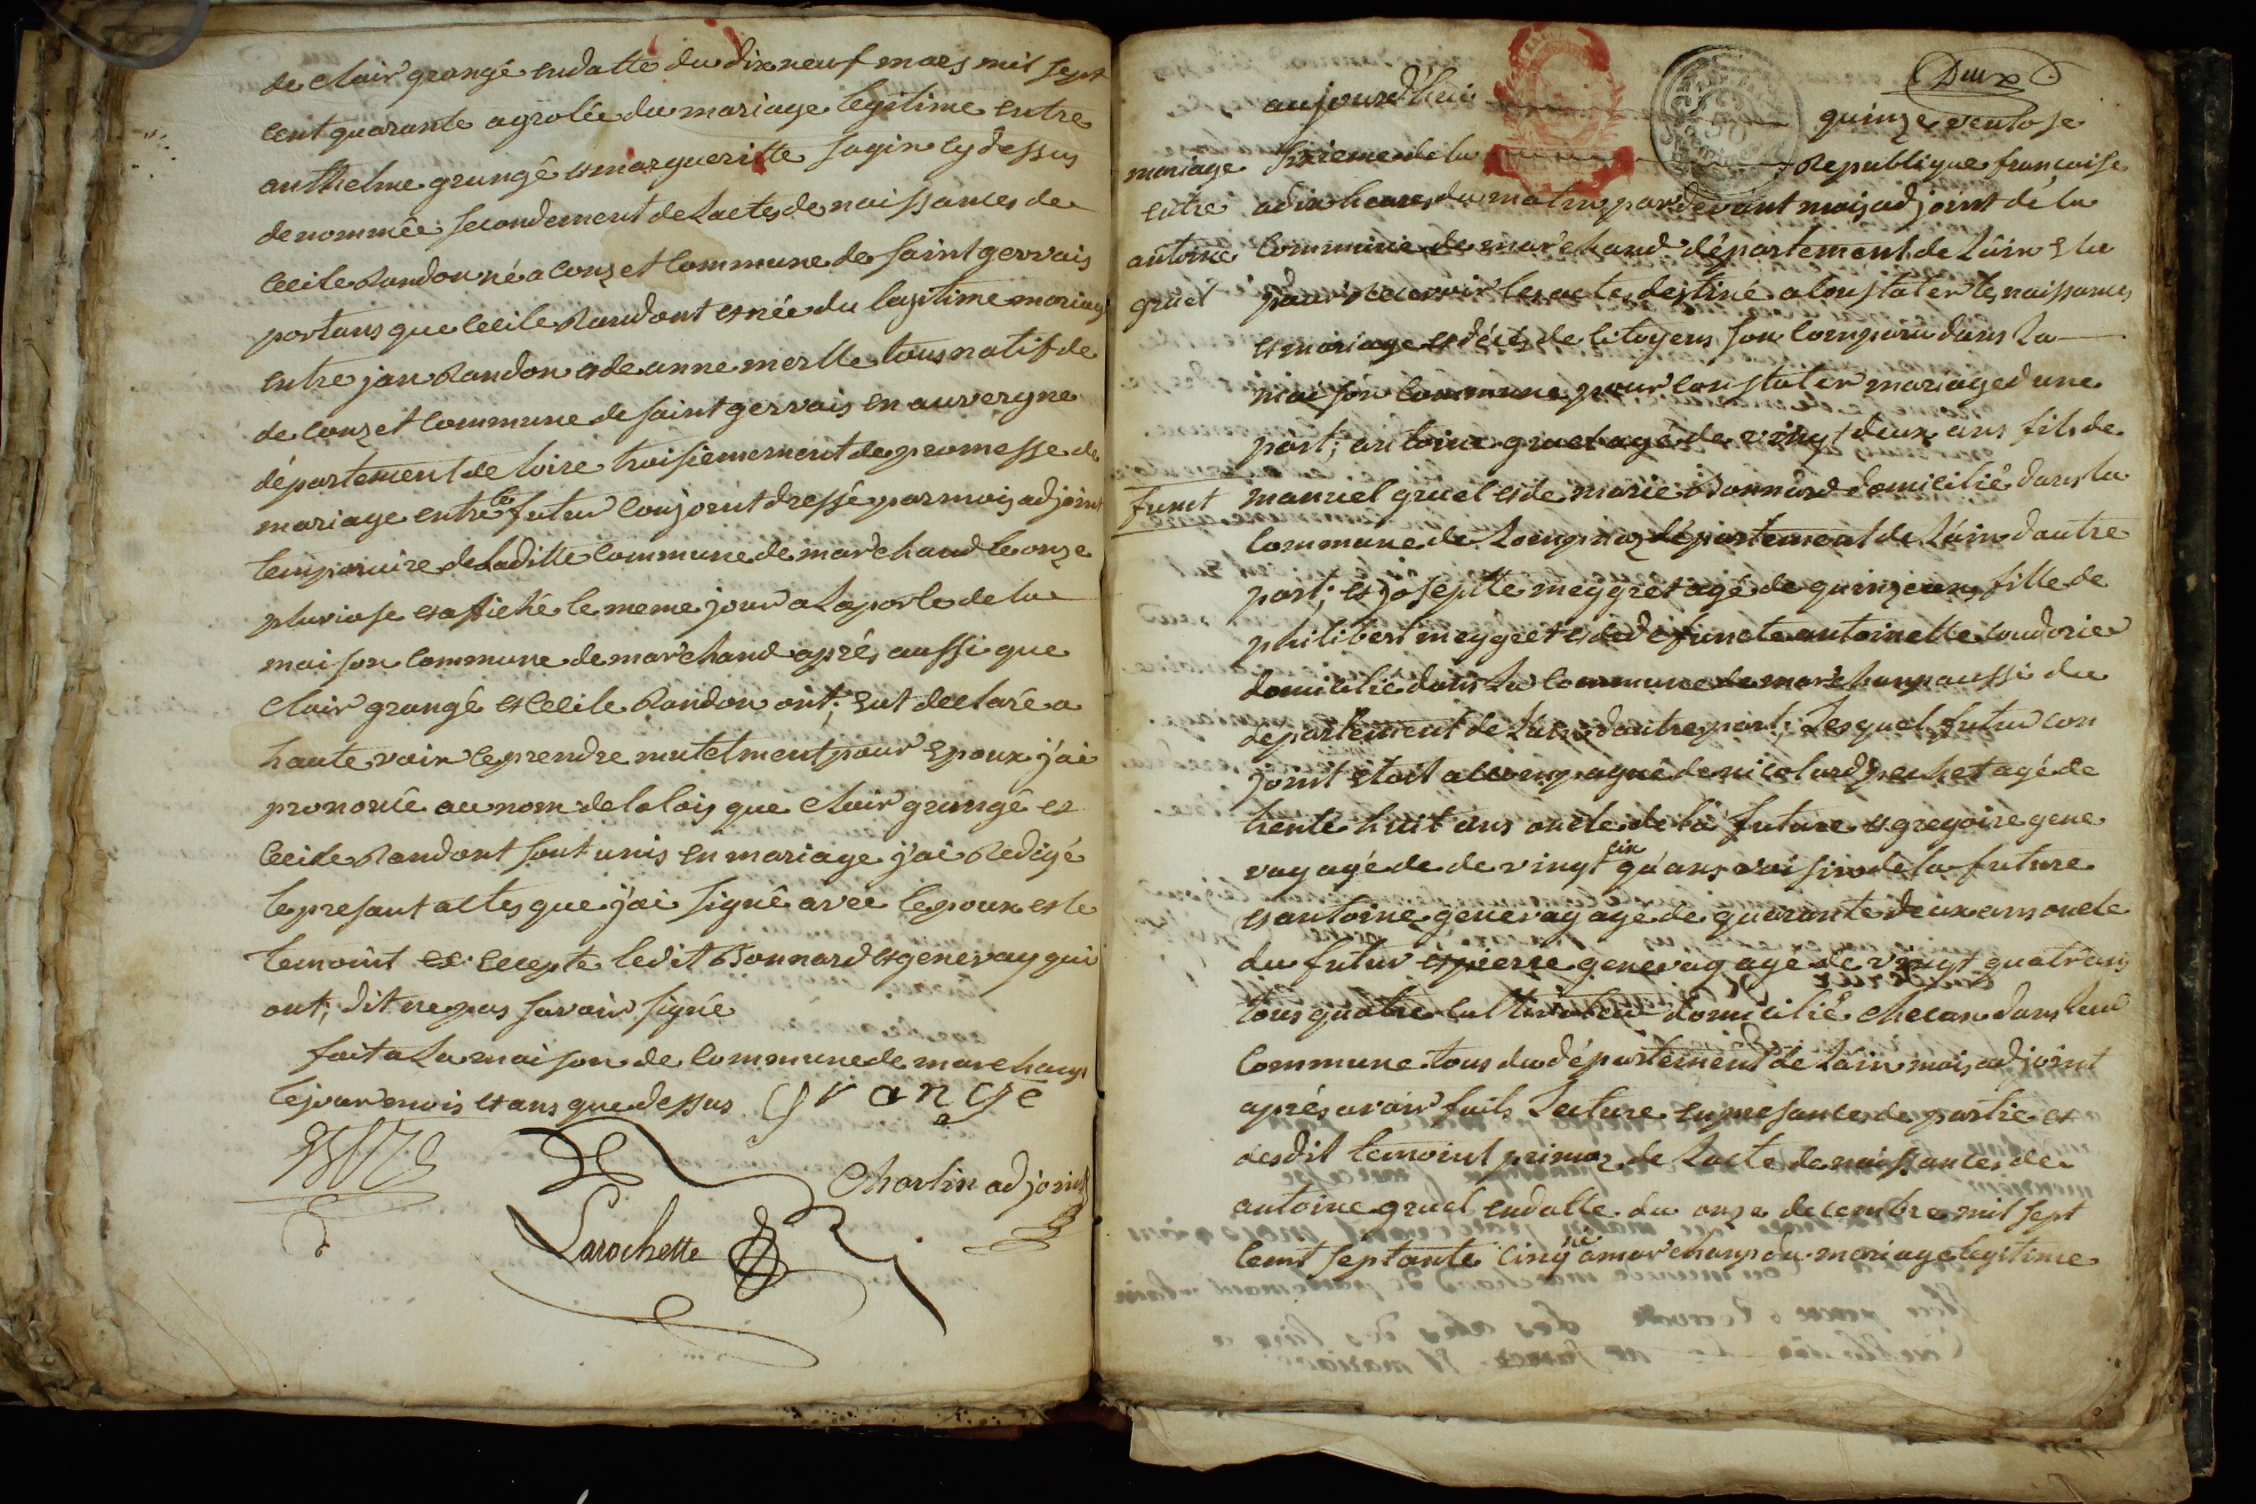 de clair grangé endatte du dix neuf mars mil sept
cent quarante agrolée du mariage legitime entre
anthelme grangé et margueritte sagin cy dessus
denommée secondement de Lactes de naissances de
Cecile Randon né a Conzet Commune de saint gervais
portans que Cecile Randont et née du lagitime mariage
entre jan Randon et de anne merlle tous natif de
de Conzet Commune de saint gervais en auvergne
département de loire troisiemement de promesse de
mariage entre les futur Conjoint dressé par mois adjoint
temporaire de Laditte Commune de marchand le onze
pluviose et afiché le meme jour a Laporte de la
maison Commune de marchand aprés aussi que
Clair grangé et Cecile Randon ont; eut declaré a
haute voix ce prendre mutelment pour Epoux j'ai
prononcé au nom de la lois que Clair grangé et
Cecile Randont sont unis en mariage j'ai Redigé
le presant actes que j'ai signé avec lepoux et le
temoint ex eccepte ledit Bonnard et genevay qui
ont; dit ne pas savoir signé
fait a La maison de Commune de marchamp
le jour mois et ans que dessus grangé
Charlin adjoint
Larochette
Deux
aujourd'hui quinze ventose
mariage sixieme de la Republique françoise
entre a dix heures du matin par devant mois adjoint de la
antoine Commune de marchand département de Lain Elu
gruel pour Recevoir les actes destiné a Constater les naissances
et mariage et décés de Citoyens son Comparu dans La
maison Commune pour constater mariage d'une
part; antoine gruel agé de vingt deux ans fils de
funct manuel gruel et de marie Bonnard domicilié dans la
Commune de département de Lain d'autre
part; et josephte meygret agé de quinze ans fille de
philibert meygret et de defuncte antoinette
domicilié dans La Commune de marchamp aussi du
departement de Lain d'autre part; Lesquels futur con
joint etoit accompagné de nicolard pechet agé de
trente huit ans oncle de la future et gregoire gene
vay agé de de vingt cin q'ans voisin de la future
et antoine genevay agé de quarante deux ans oncle
du futur et pierre genevay agé de vingt quatr'ans
tous quatre Cultivateur domicilié checun dans leur
Commune tous du département de Lain mois adjoint
aprés avoir fait Lecture en presance de partie et
desdit temoint primoz de Lacte de naissances de
antoine gruel endatte du onze decembre mil sept
Cent septante cinq né a marchamp du mariage legitime